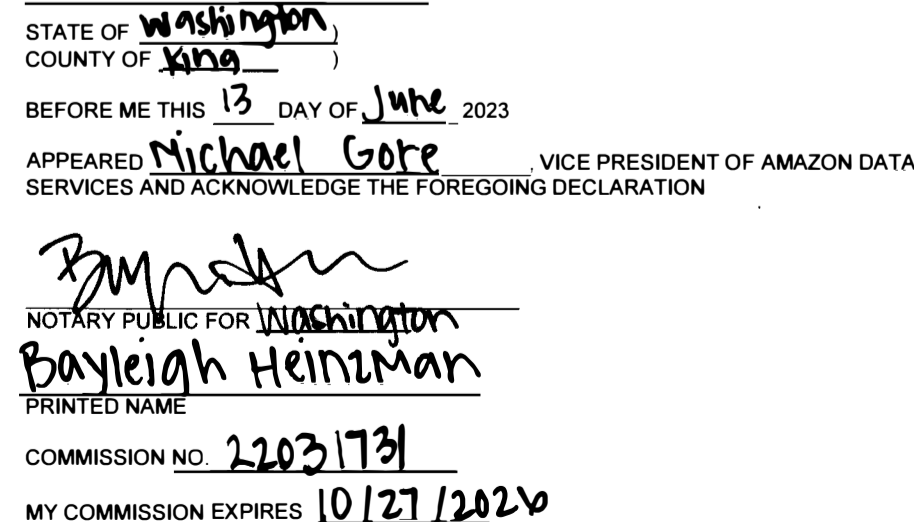 STATE OF Washington )
COUNTY OF King )
BEFORE ME THIS 13 DAY OF June 2023
APPEARED Michael Gore , VICE PRESIDENT OF AMAZON DATA
SERVICES AND ACKNOWLEDGE THE FOREGOING DECLARATION
NOTARY PUBLIC FOR Washington
Bayleigh Heinzman
PRINTED NAME
COMMISSION NO. 22031731
MY COMMISSION EXPIRES 10/27/2026